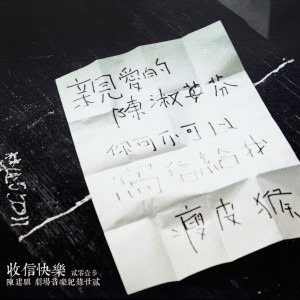 親愛的
陳淑芬
你可不可以
寫信給我
瘦皮猴
收信快樂 貳零壹參
陳建騏 劇場音樂紀錄廿貳